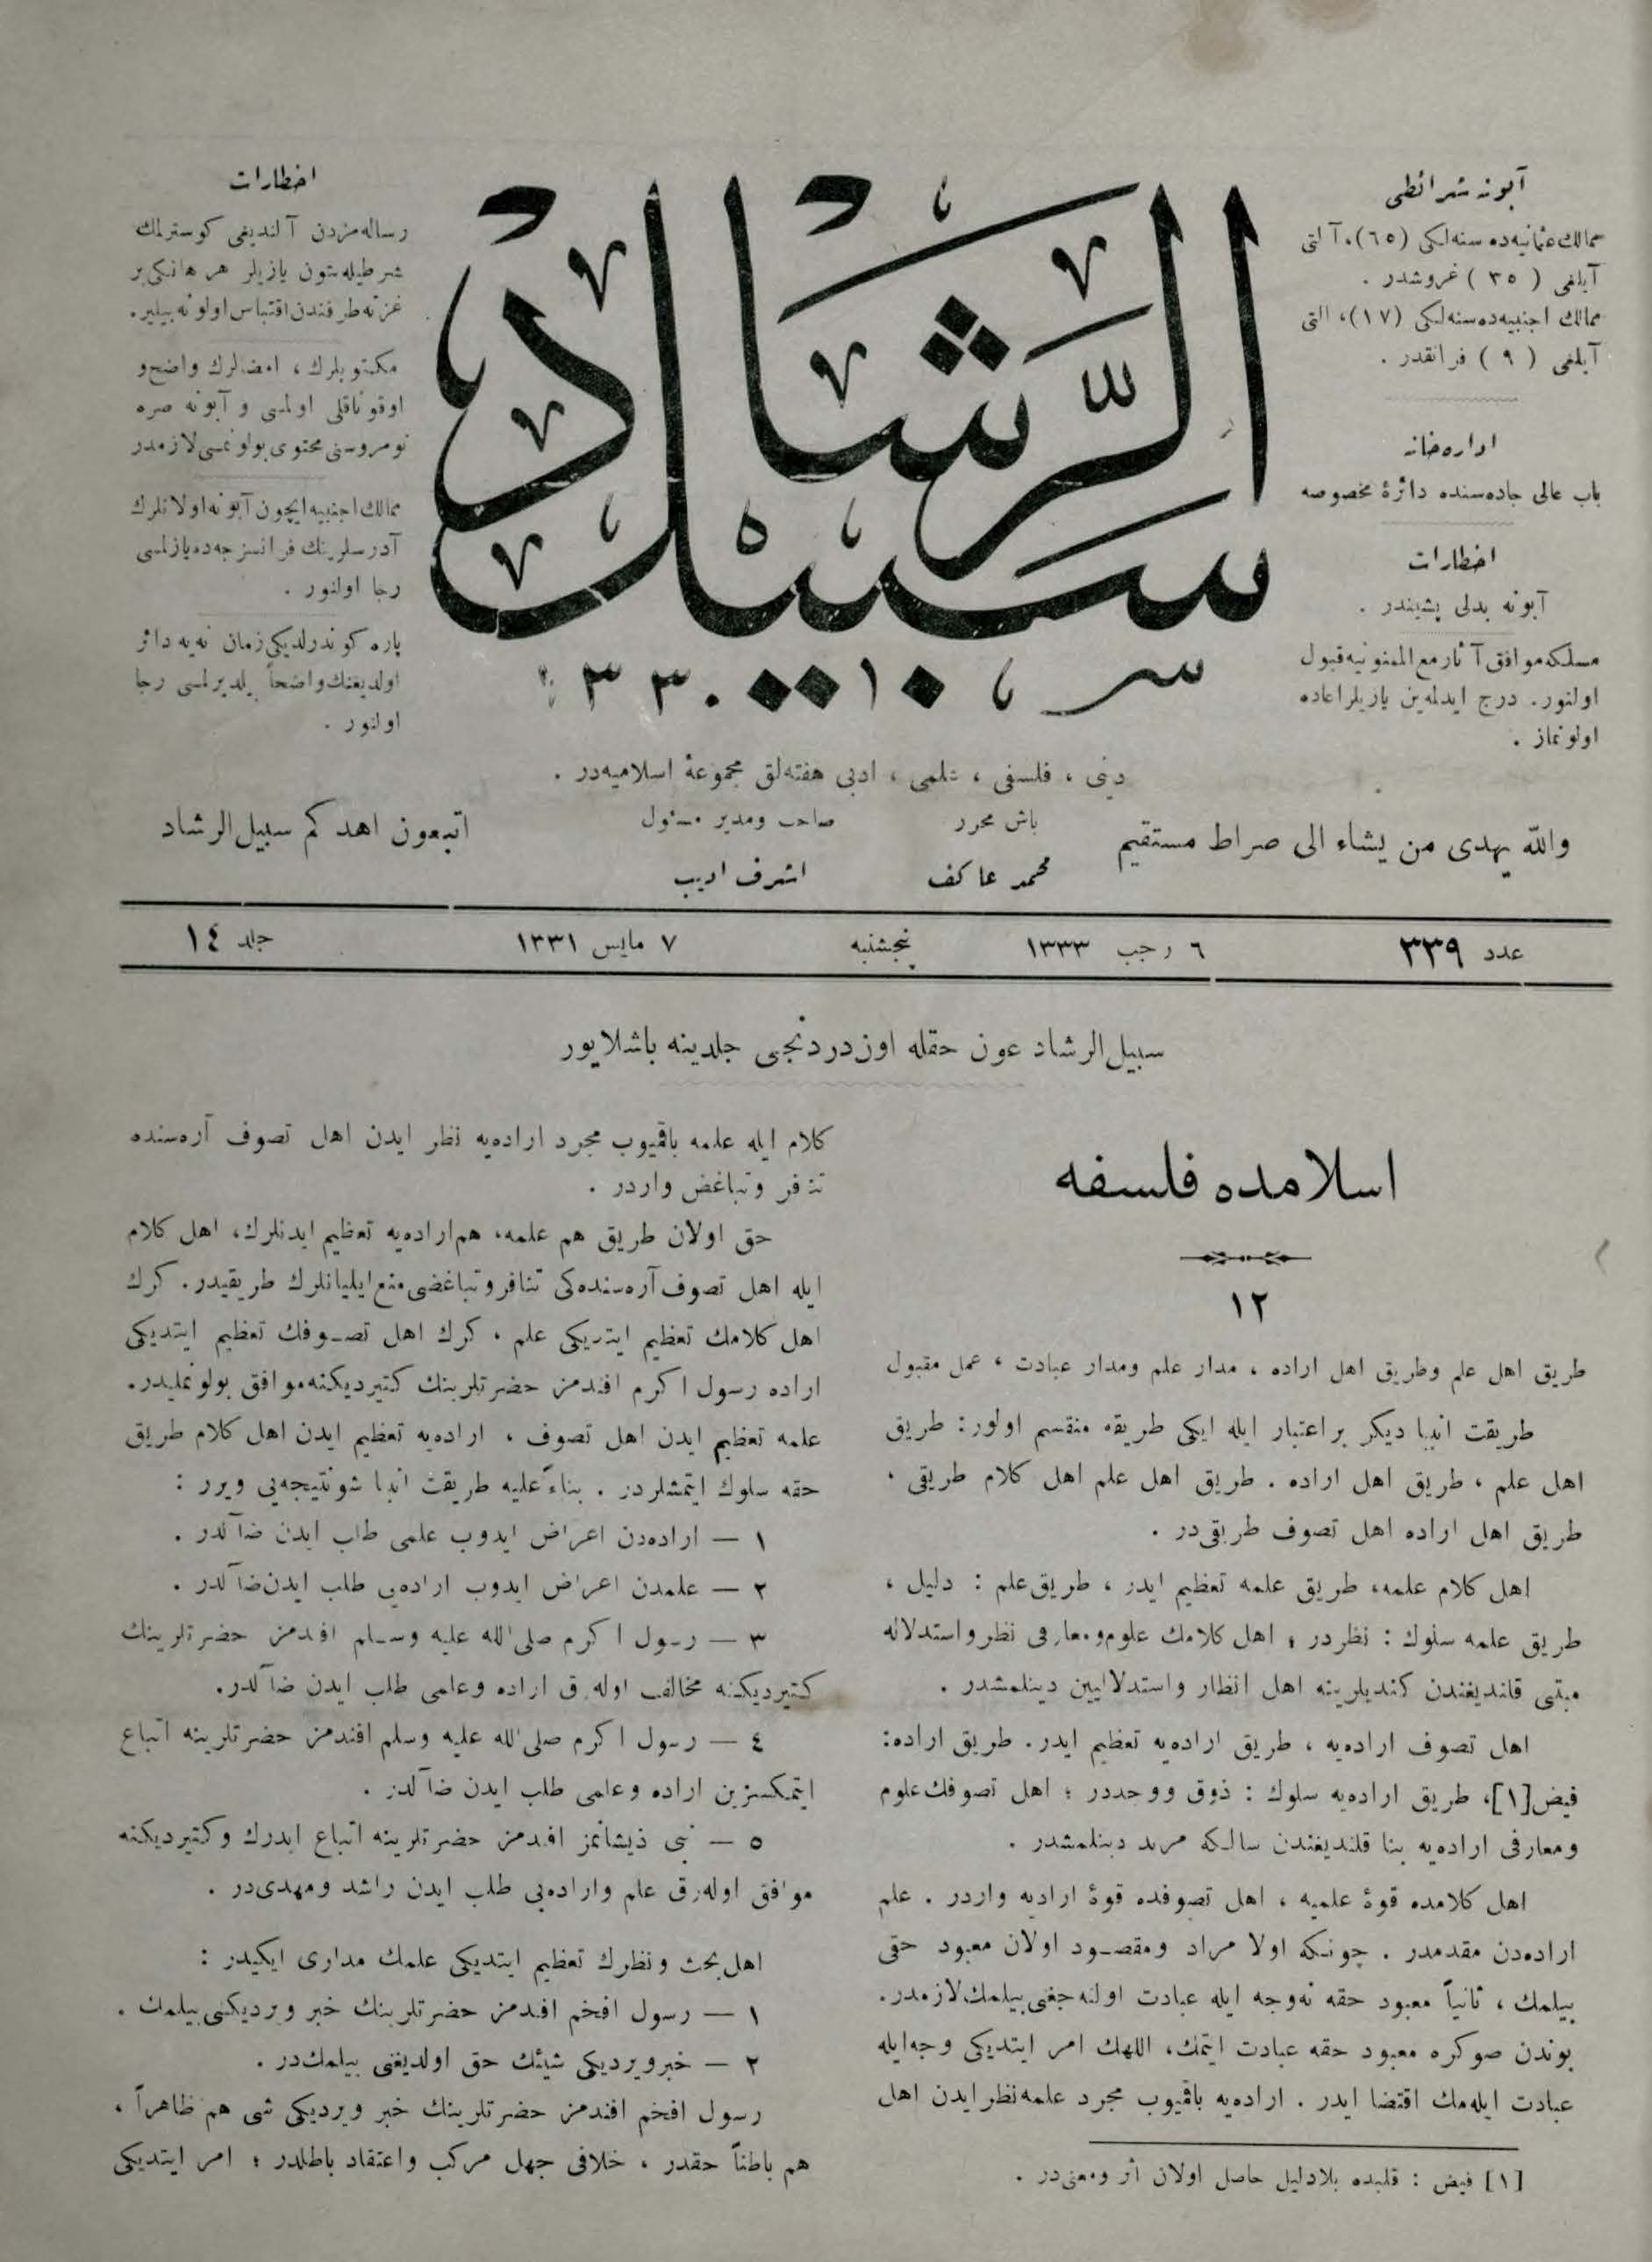 آبونه شرائطی
ممالك عثمانیه‌ده سنه‌لكی (٦٥)، آلتی
آیلغی ( ٣٥ ) غروشدر .
ممالك اجنبیه‌ده سنه‌لكی (١٧)، التی
آیلغی ( ٩ ) فرانقدر .
اداره‌خانه
باب عالی جاده‌سنده دائرهٔ مخصوصه
اخطارات
آبونه بدلی پشیندر .
مسلكه موافق آثار مع الممنونیه قبول
اولنور. درج ایدلمه‌ین یازیلر اعاده
اولونماز .
سبیل‌الرشاد
سر
اخطارات
رساله‌مزدن آلندیغی كوسترلمك
شرطیله بتون یازیلر هر هانكی بر
غزته طرفندن اقتباس اولونه‌بیلیر.
مكتوبلرك ، امضالرك واضح و
اوقوناقلی اولمسی و آبونه صره
نومروسنی محتوی بولونمسی لازمدر
ممالك اجنبیه ایچون آبونه اولانلرك
آدرسلرینك فرانسزجه‌ده یازلمسی
رجا اولنور .
پاره كوندرلدیكی زمان نه‌یه دائر
اولدیغنك واضحاً بیلدیرلمسی رجا
اولنور .
دینی ، فلسفی ، علمی ، ادبی هفته‌لق مجموعهٔ اسلامیه‌در .
والله یهدی من یشاء الی صراط مستقیم
باش محرر
محمد عاكف
صاحب ومدیر مسئول
اشرف ادیب
اتبعون اهدكم سبیل‌الرشاد
عدد ٣٣٩
٦ رجب ١٣٣٣
پنجشنبه
٧ مایس ١٣٣١
جلد ١٤
سبیل‌الرشاد عون حقله اون‌دردنجی جلدینه باشلایور
اسلامده فلسفه
١٢
طریق اهل علم وطریق اهل اراده ، مدار علم ومدار عبادت ، عمل مقبول
طریقت انبیا دیكر بر اعتبار ایله ایكی طریقه منقسم اولور: طریق
اهل علم ، طریق اهل اراده . طریق اهل علم اهل كلام طریقی ،
طریق اهل اراده اهل تصوف طریقی‌در .
اهل كلام علمه، طریق علمه تعظیم ایدر ، طریق‌علم : دلیل ،
طریق علمه سلوك : نظردر ؛ اهل كلامك علوم‌ومعارفی نظر واستدلاله
مبتنی قلندیغندن كندیلرینه اهل انظار واستدلالیین دینلمشدر .
اهل تصوف اراده‌یه ، طریق اراده‌یه تعظیم ایدر. طریق اراده:
فیض[١]، طریق اراده‌یه سلوك : ذوق ووجددر ؛ اهل تصوفك‌علوم
ومعارفی اراده‌یه بنا قلندیغندن سالكه مرید دینلمشدر .
اهل كلامده قوهٔ علمیه ، اهل تصوفده قوهٔ ارادیه واردر . علم
اراده‌دن مقدمدر . چونكه اولا مراد ومقصود اولان معبود حقی
بیلمك ، ثانیاً معبود حقه نه‌وجه ایله عبادت اولنه‌جغنی بیلمك‌لازمدر.
بوندن صوكره معبود حقه عبادت ایتمك، اللهك امر ایتدیكی وجه‌ایله
عبادت ایله‌مك اقتضا ایدر . اراده‌یه باقمیوب مجرد علمه‌نظر ایدن اهل
[١] فیض : قلبده بلادلیل حاصل اولان اثر ومعنی‌در .
كلام ایله علمه باقمیوب مجرد اراده‌یه نظر ایدن اهل تصوف آره‌سنده
تنافر وتباغض واردر .
حق اولان طریق هم علمه، هم‌اراده‌یه تعظیم ایدنلرك، اهل كلام
ایله اهل تصوف آره‌سنده‌كی تنافر وتباغضی منع ایلیانلرك طریقیدر. كرك
اهل كلامك تعظیم ایتدیكی علم ، كرك اهل تصوفك تعظیم ایتدیكی
اراده رسول اكرم افندمز حضرتلرینك كتیردیكنه‌موافق بولونملیدر.
علمه تعظیم ایدن اهل تصوف ، اراده‌یه تعظیم ایدن اهل كلام طریق
حقه سلوك ایتمشلردر . بناءً علیه طریقت انبیا شونتیجه‌یی ویرر :
١ — اراده‌دن اعراض ایدوب علمی طلب ایدن ضآلدر .
٢ — علمدن اعراض ایدوب اراده‌یی طلب ایدن‌ضآلدر .
٣ — رسول اكرم صلی‌الله علیه وسلم افندمز حضرتلرینك
كتیردیكنه مخالف اوله‌رق اراده وعلمی طلب ایدن ضآلدر.
٤ — رسول اكرم صلی‌الله علیه وسلم افندمز حضرتلرینه اتباع
ایتمكسزین اراده وعلمی طلب ایدن ضآلدر .
٥ — نبی ذیشانمز افندمز حضرتلرینه اتباع ایدرك وكتیردیكنه
موافق اوله‌رق علم واراده‌یی طلب ایدن راشد ومهدی‌در .
اهل بحث ونظرك تعظیم ایتدیكی علمك مداری ایكیدر :
١ — رسول افخم افندمز حضرتلرینك خبر ویردیكنی بیلمك .
٢ — خبرویردیكی شیئك حق اولدیغنی بیلمك‌در .
رسول افخم افندمز حضرتلرینك خبر ویردیكی شی هم ظاهراً ،
هم باطناً حقدر ، خلافی جهل مركب واعتقاد باطلدر ؛ امر ایتدیكی